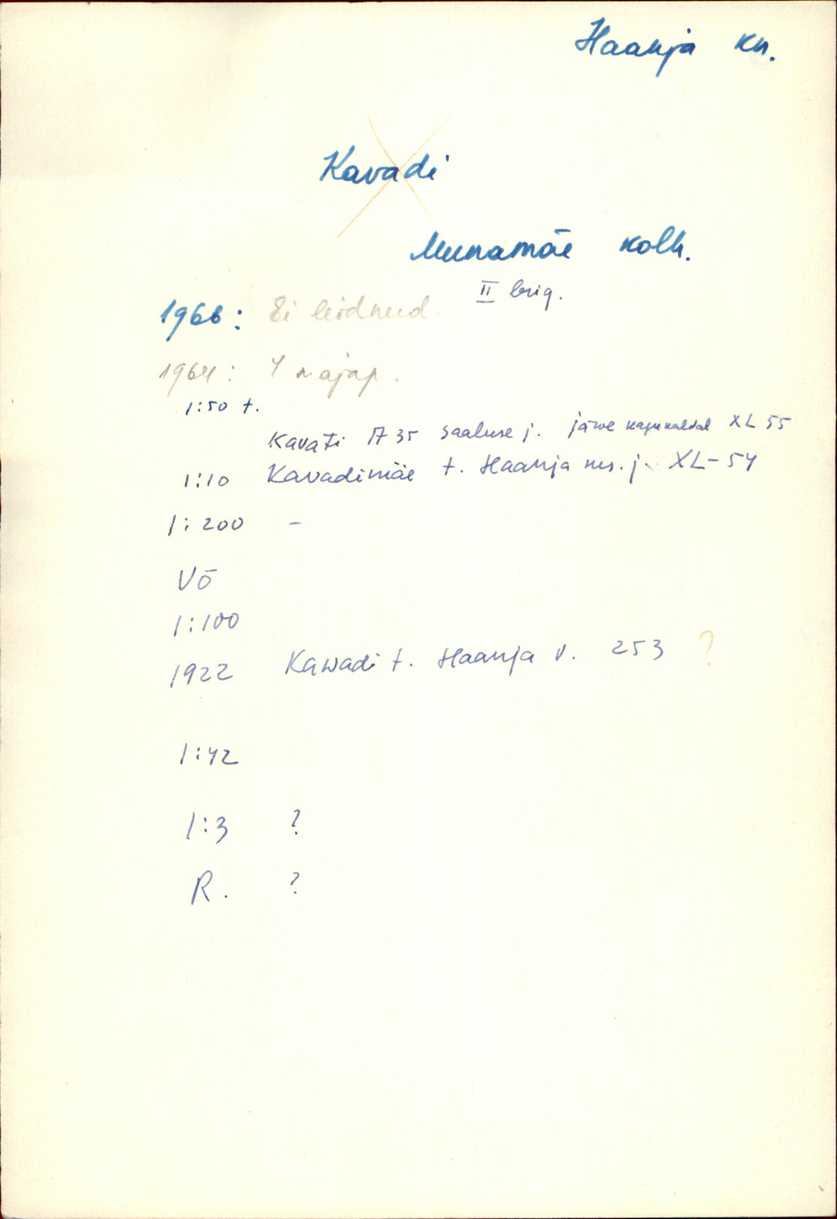 Haanja kn.
Kavadi
Munamäe kolh.
II brig.
1966: Ei leidnud.
1964: 4 majap.
1:50 t.
Kavati A 35 Saaluse j. järve kagukaldal XL 55
1:10 Kavadimäe t. Haanja ms. j. XL-54
1:200 -
Võ
1:100
1922 Kawadi t. Haanja v. 253 ?
1:42
1:3 ?
R. ?